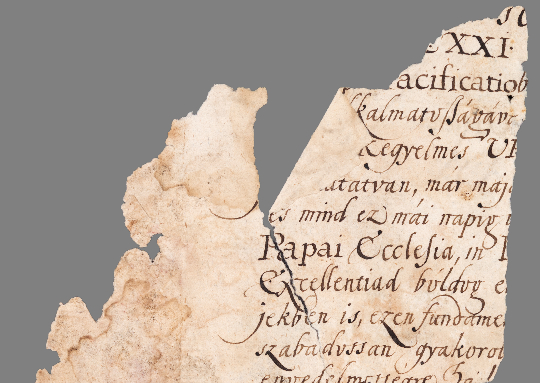 XXI.
acificatiob
kalmatusságáv
Kegyelmes
atatván, már maj
es mind ez mái napig
Papai Ecclesia, in
Excellentiad bóldog e
jekben is, ezen fundame
szabadossan gyakorol